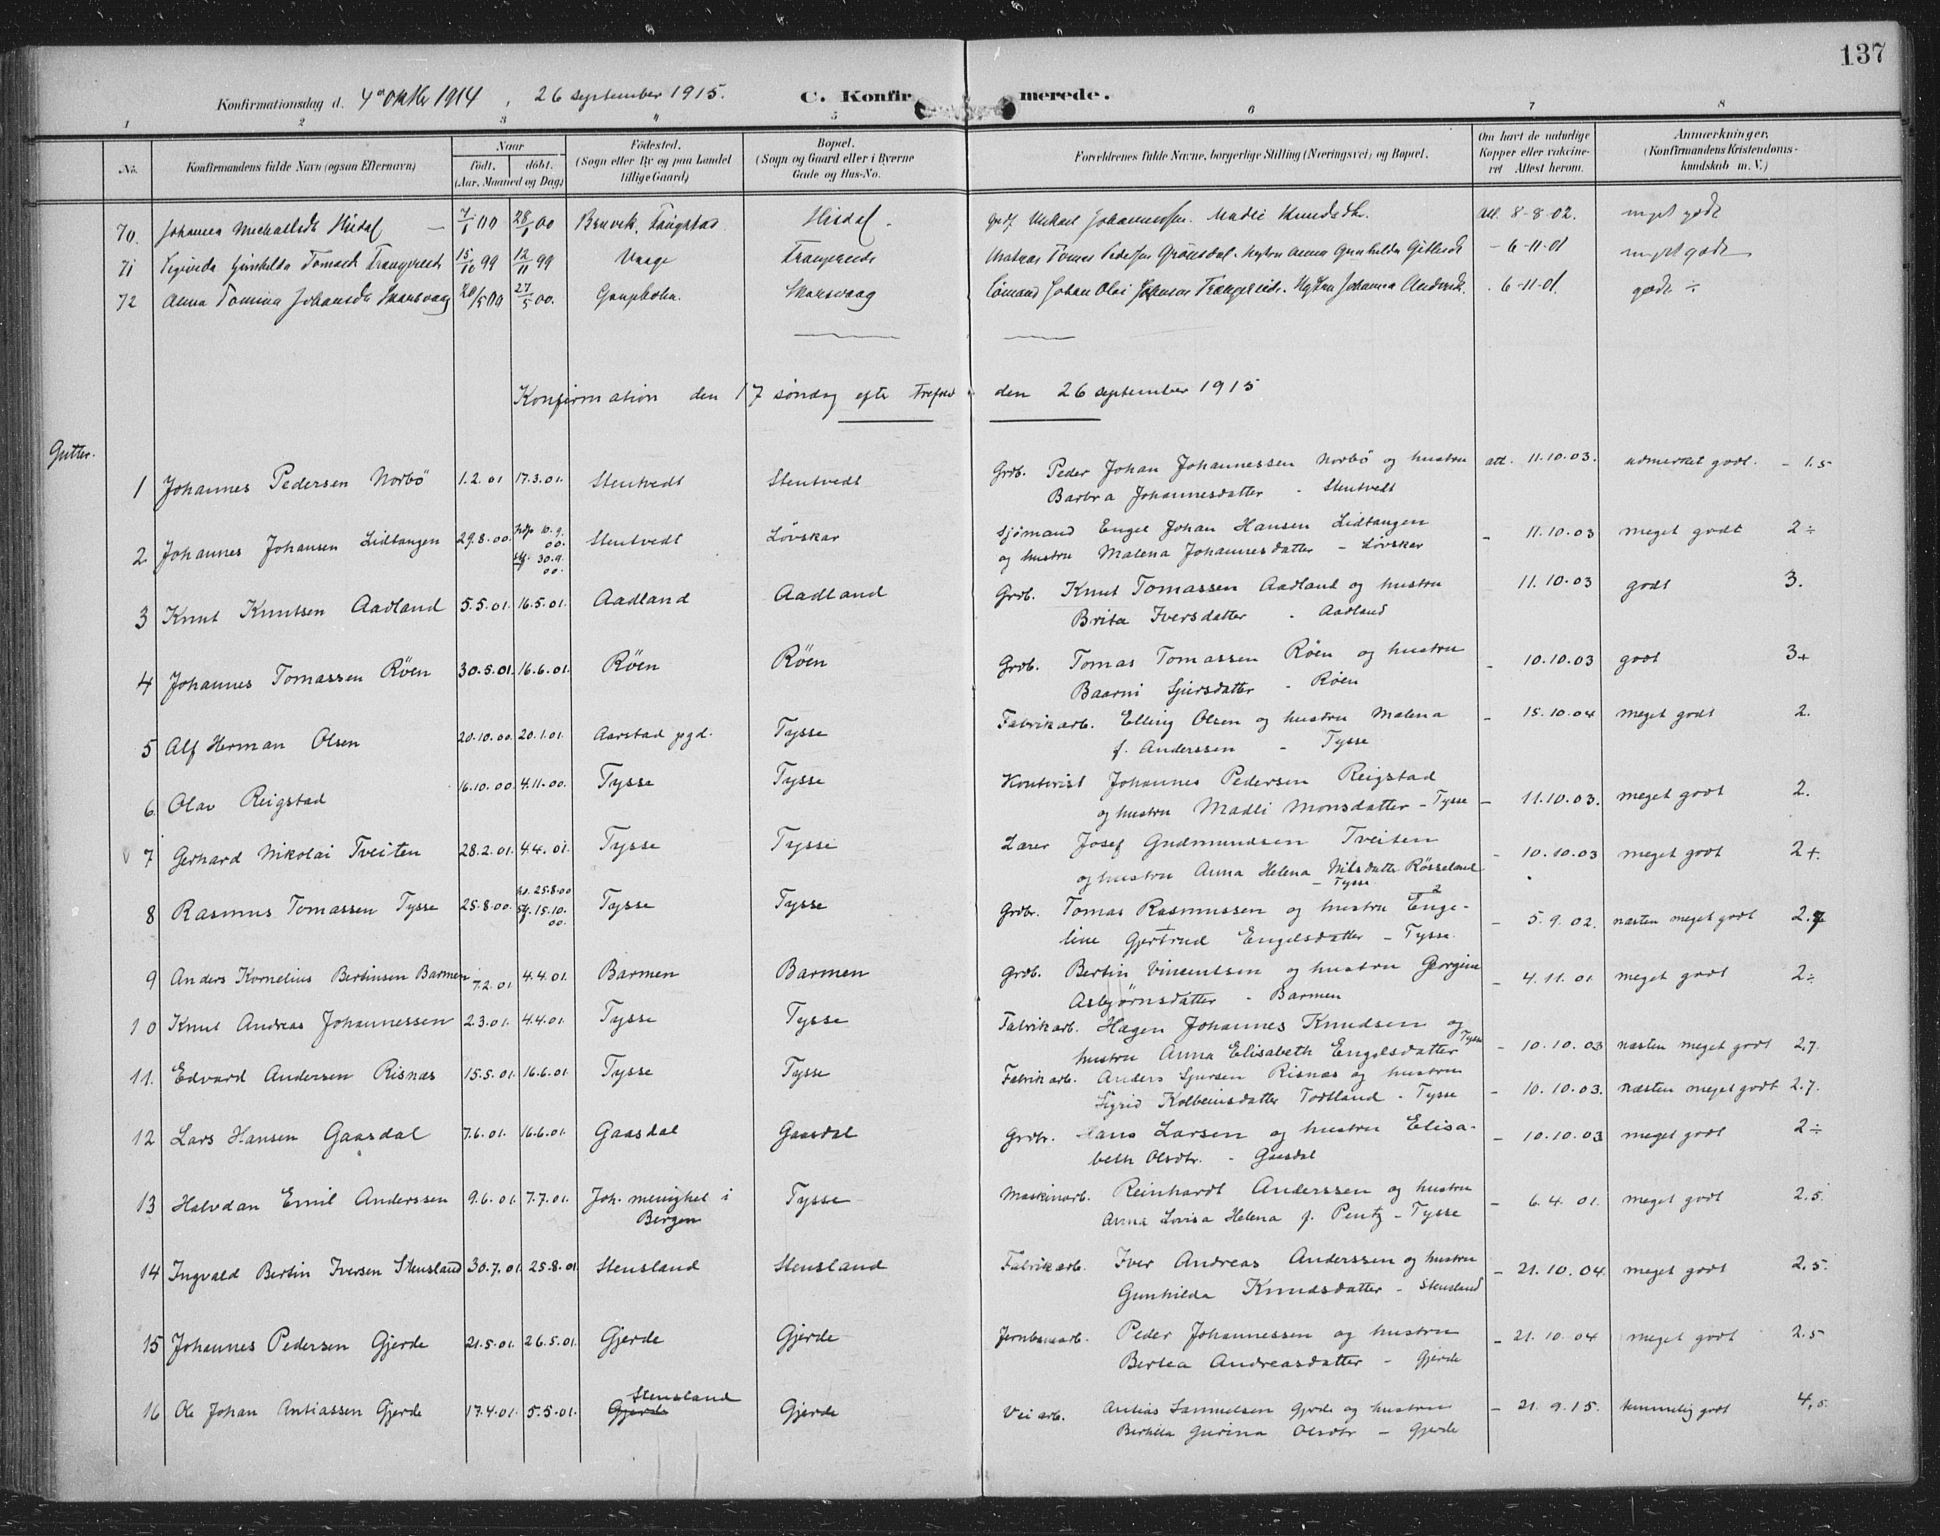 137
Konfirmationsdag d. 4de oktbr 1914, 26 september 1915. C. Konfirmerede.
1 2 3 4 5 6 7 8
No. Konfirmandens fulde Navn (ogsaa Efternavn) Naar født. døbt. (Aar, Maaned og Dag) Fødested. (Sogn eller By og paa Landet tillige Gaard) Bopæl. (Sogn og Gaard eller i Byerne Gade og Hus-No. Forældrenes fulde Navne, borgerlige Stilling (Næringsvei) og Bopæl. Om havt de naturlige Kopper eller vakcineret Attest herom. Anmærkninger, (Konfirmandens Kristendomskundskab m. V.)
70. Johanna Mickalsdt Hisdal 7/1 00 28/1 00 Bruvik. Hisdal. Mikael Johannessen. Madli Knudsdtr. att. 8-8-02. meget godt
71 Gunhilda Tomasdt 15/10 99 12/11 99 Vaage Tomas Pedersen Anna Gunhilda - 6-11-01 meget godt
72 Anna Tomina Johansdt Skarsvaag 20/5 00 27/5 00. Gauphola. Skarsvaag Sømand Johan Olai Johanna . 6-11-01. godt ÷
Konfirmation den 17 søndag efter trefold. den 26 september 1915
Gutter.
1 Johannes Pedersen Norbö 1.2.01 17.3.01. Stentvedt Stentvedt Grdb. Peder Johan Johannessen Norbö og hustru att. 11.10.03. udmerket godt. - 1.5
Barbra Johannesdatter - Stentvedt
2 Johannes Johansen Lidtangen 29.8.00. hdp 10.9.00. stf. 30.9.00. Stentvedt Løvskar Sjømand Engel Johan Hansen Lidtangen
og hustru Malena Johannesdatter - Løvskar - 11.10.03 meget godt 2÷
3 Knut Knutsen Aadland 5.5.01. 16.5.01. Aadland Aadland Grdb. Knut Tomassen Aadland og hustru 11.10.03 godt 3.
Brita Iversdatter . Aadland
4 Johannes Tomassen Röen 30.5.01. 16.6.01. Röen Röen Grdb. Tomas Tomassen Röen og hustru - 10.10.03 godt 3+
Baarni Sjursdatter - Röen
5 Alf Herman Olsen 20.10.00. 20.1.01. Aarstad pgd. Tysse Fabrikarb. Elling Olsen og hustru Malena - 15.10.04 meget godt 2.
f. Anderssen - Tysse
6 Olav Reigstad 16.10.00. 4.11.00. Tysse Tysse Kontorist Johannes Pedersen Reigstad
og hustru Madli Monsdatter - Tysse - 11.10.03. meget godt 2.
7 Gerhard Nikolai Tveiten 28.2.01. 4.4.01. Tysse Tysse Lærer Josef Gudmundsen Tveiten
og hustru Anna Helena Nilsdatter Røsseland - Tysse - 10.10.03 meget godt 2+.
8 Rasmus Tomassen Tysse 25.8.00. hd. 25.8.00 stf. 15.10.00. Tysse Tysse Grdbr. Tomas Rasmussen og hustru Enge-
line Gjertrud Engelsdatter - Tysse. - 5.9.02. næsten meget godt 2.7
9 Anders Kornelius Bertinsen Barmen 7.2.01 4.4.01. Barmen Barmen Grdb. Bertin Vincentsen og hustru Georgine - 4.11.01. meget godt 2÷
Asbjørnsdatter - Barmen
10 Knut Andreas Johannessen 2.3.01. 4.4.01. Tysse Tysse Fabrikarb. Hagen Johannes Knudsen og
hustru Anna Elisabeth Engelsdatter Tysse - 10.10.03 næsten meget godt 2.7.
11. Edvard Andersen Risnæs 15.5.01. 16.6.01. Tysse Tysse Fabrikarb. Anders Sjursen Risnæs og hustru
Sigrid Kolbeinsdatter Todtland - Tysse - 10.10.03. næsten meget godt 2.7.
12 Lars Hansen Gaasdal 7.6.01. 16.6.01. Gaasdal Gaasdal Grdbr. Hans Larsen og hustru Elisa-
beth Olsdtr. - Gaasdal - 10.10.03 meget godt 2÷
13 Halvdan Emil Anderssen 9.6.01. 7.7.01. Joh. menighet i Bergen Tysse Maskinarb. Reinhardt Anderssen og hustru
Anna Lovisa Helena f. Pentz - Tysse - 6.4.01. meget godt 2.5.
14 Ingvald Bertin Iversen Stensland 30.7.01. 25.8.01. Stensland Stensland Fabrikarb. Iver Andreas Anderssen og hustru
Gunhilda Knudsdatter - Stensland - 21.10.04. meget godt 2.5.
15 Johannes Pedersen Gjerde 21.5.01. 26.5.01. Gjerde Gjerde Jernbanearb. Peder Johannessen og hustru
Bertea Andreasdatter - Gjerde - 21.10.04 meget godt 2.5
16 Ole Johan Antiassen Gjerde 17.4.01. 5.5.01. Stensland Gjerde Gjerde Veiarb. Antias Samuelsen Gjerde og hustru
Berthea Gurina Olsdtr - Gjerde - 21.9.15. temmelig godt 4,5